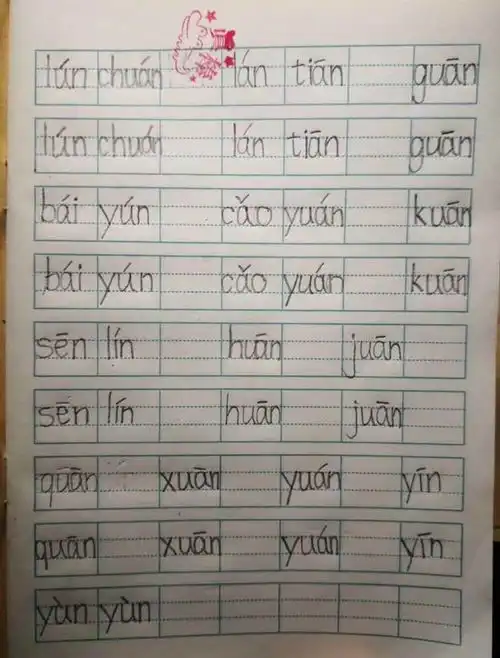 lún chuán lán tiān guān
lún chuán lán tiān guān
bái yún cǎo yuán kuān
bái yún cǎo yuán kuān
sēn lín huān juān
sēn lín huān juān
quān xuān yuán yīn
quān xuān yuán yīn
yùn yùn